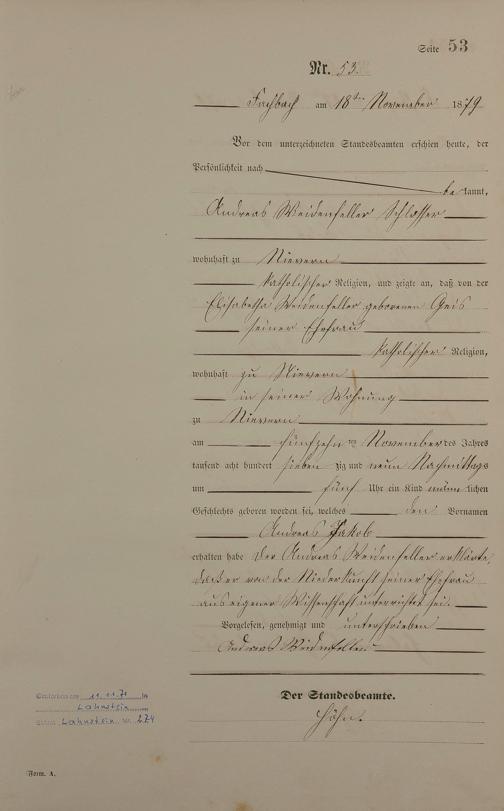 Seite 53
Nr. 53.
Fachbach am 18ten November 1879
Vor dem unterzeichneten Standesbeamten erschien heute, der
Persönlichkeit nach
be kannt,
Andreas Weidenfeller Schlosser
wohnhaft zu Nievern
katholischer Religion, und zeigte an, daß von der
Elisabetha Weidenfeller geborenen Geis
seiner Ehefrau
katholischer Religion,
wohnhaft zu Nievern
in seiner Wohnung
zu Nievern
am fünfzehn ten November des Jahres
tausend acht hundert sieben zig und neun Nachmittags
um fünf Uhr ein Kind männ lichen
Geschlechts geboren worden sei, welches den Vornamen
Andreas Jakob
erhalten habe Der Andreas Weidenfeller erklärte,
daß er von der Niederkunft seiner Ehefrau
aus eigener Wissenschaft unterrichtet sei.
Vorgelesen, genehmigt und unterschrieben
Andreas Weidenfeller
Der Standesbeamte.
Höhn.
Gestorben am 11.11.71 in
Lahnstein
Lahnstein Nr. 274
Form. A.